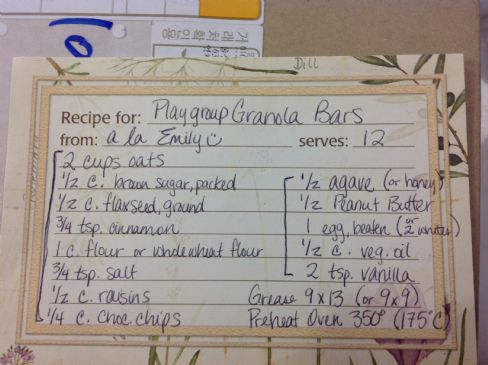 거래처확인용
Dill
Recipe for: Playgroup Granola Bars
from: a la Emily☺ serves: 12
2 cups oats
1/2 c. brown sugar, packed
1/2 c. flaxseed, ground
3/4 tsp. cinnamon
1 c. flour or whole wheat flour
3/4 tsp. salt
1/2 c. raisins
1/4 c. choc chips
1/2 agave (or honey)
1/2 Peanut Butter
1 egg, beaten (or 2 whites)
1/2 c. veg. oil
2 tsp. vanilla
Grease 9x13 (or 9x9)
Preheat Oven 350° (175°C)